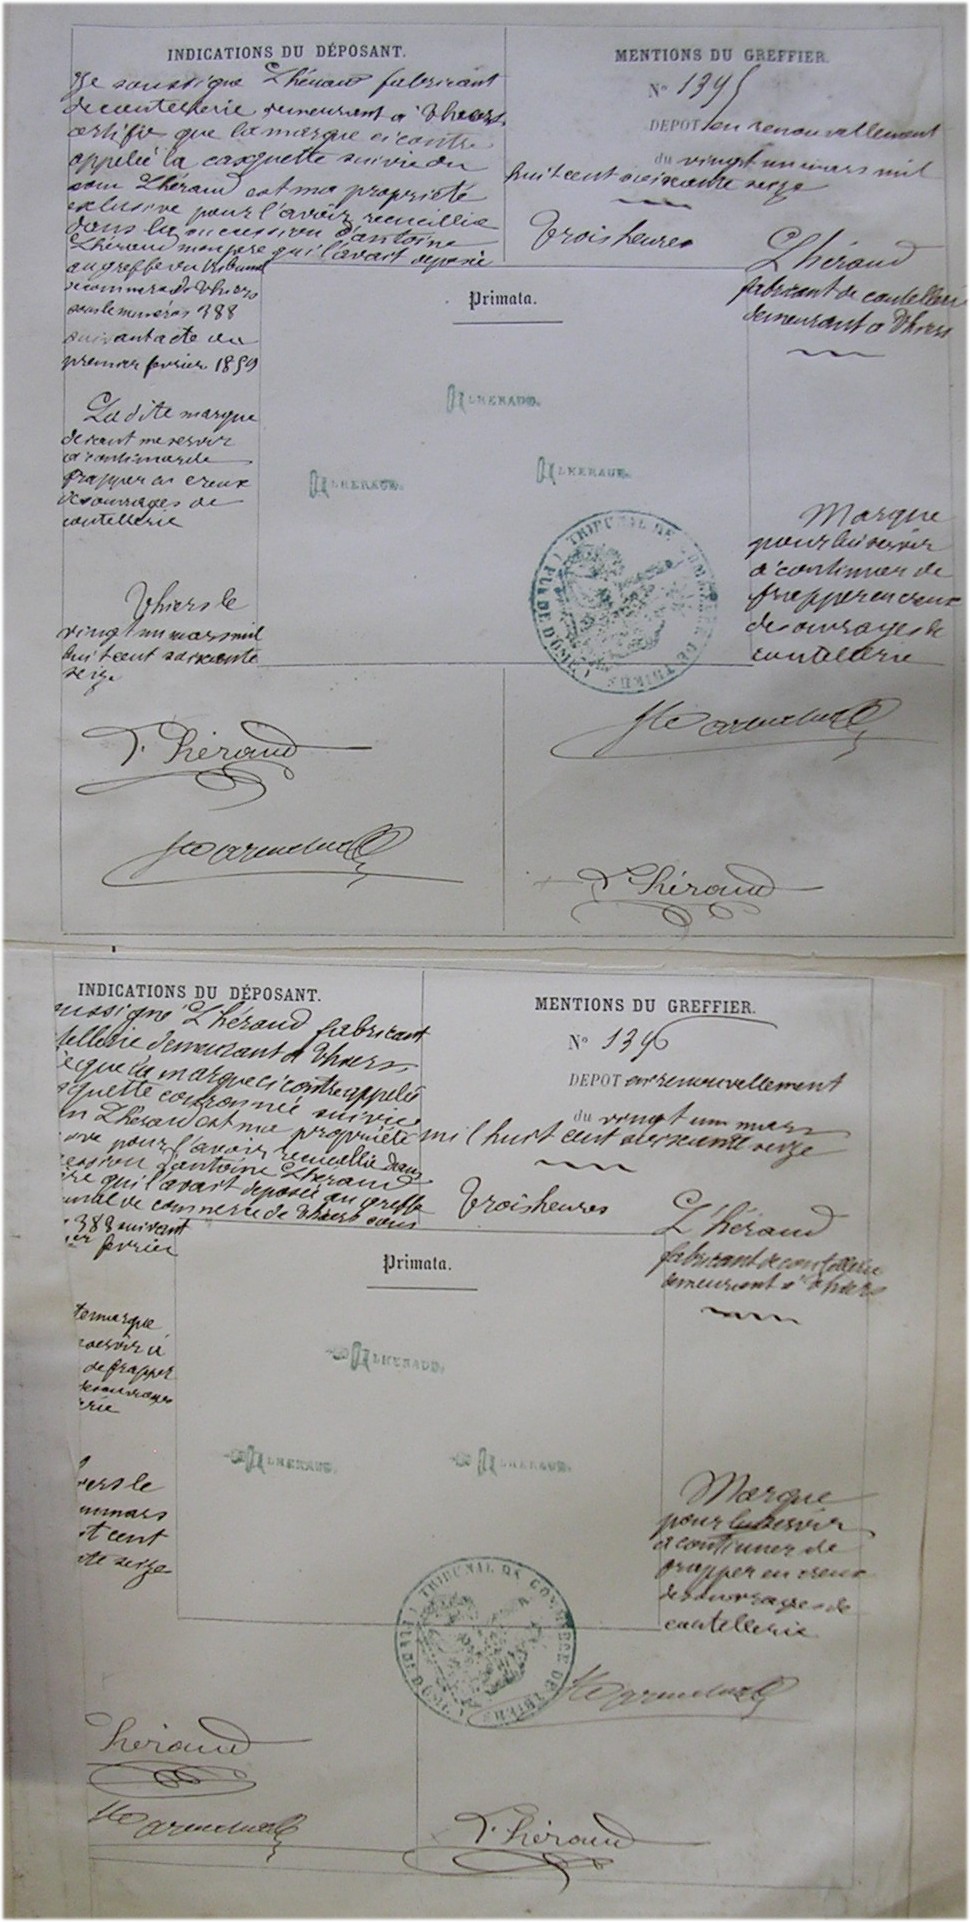 INDICATIONS DU DÉPOSANT.
Je soussigné Lhéraud fabricant
de coutellerie demeurant à Thiers
certifie que la marque ci contre
appelée la casquette suivie du
nom Lhéraud est ma propriété
exclusive pour l'avoir recueillie
dans la succession d'antoine
Lhéraud mon père qui l'avait deposée
au greffe du tribunal
de commerce de Thiers
sous le numéros 388
suivant acte du
premier fevrier 1859
La dite marque
devant me servir
à continuer de
frapper en creux
des ouvrages de
coutellerie
Thiers le
vingt un mars mil
huit cent soixante
seize
Lhéraud
MENTIONS DU GREFFIER.
N° 1395
DEPOT en renouvellement
du vingt un mars mil
huit cent soixante seize
Trois heures
Lhéraud
fabricant de coutellerie
demeurant à Thiers
Primata.
LHERAUD.
LHERAUD.
LHERAUD.
TRIBUNAL DE COMMERCE DE THIERS (PUY DE DOME)
Marque
pour lui servir
à continuer de
frapper en creux
des ouvrages de
coutellerie
Lhéraud
INDICATIONS DU DÉPOSANT.
oussigné Lhéraud fabricant
tellerie demeurant à Thiers
e que la marque ci contre appelée
squette couronnée suivie
m Lhéraud est ma propriété
sive pour l'avoir recueillie dans
cession d'antoine Lheraud
ère qui l'avait deposée au greffe
unal de commerce de Thiers sous
388 suivant
ier fevrier
te marque
servir à
de frapper
des ouvrages
erie
hiers le
un mars
it cent
nte seize
Lhéraud
MENTIONS DU GREFFIER.
N° 1396
DEPOT en renouvellement
du vingt un mars
mil huit cent soixante seize
Trois heures
Lhéraud
fabricant de coutellerie
demeurant à Thiers
Primata.
LHERAUD.
LHERAUD.
LHERAUD.
Marque
pour lui servir
à continuer de
frapper en creux
des ouvrages de
coutellerie
TRIBUNAL DE COMMERCE DE THIERS (PUY DE DOME)
Lhéraud